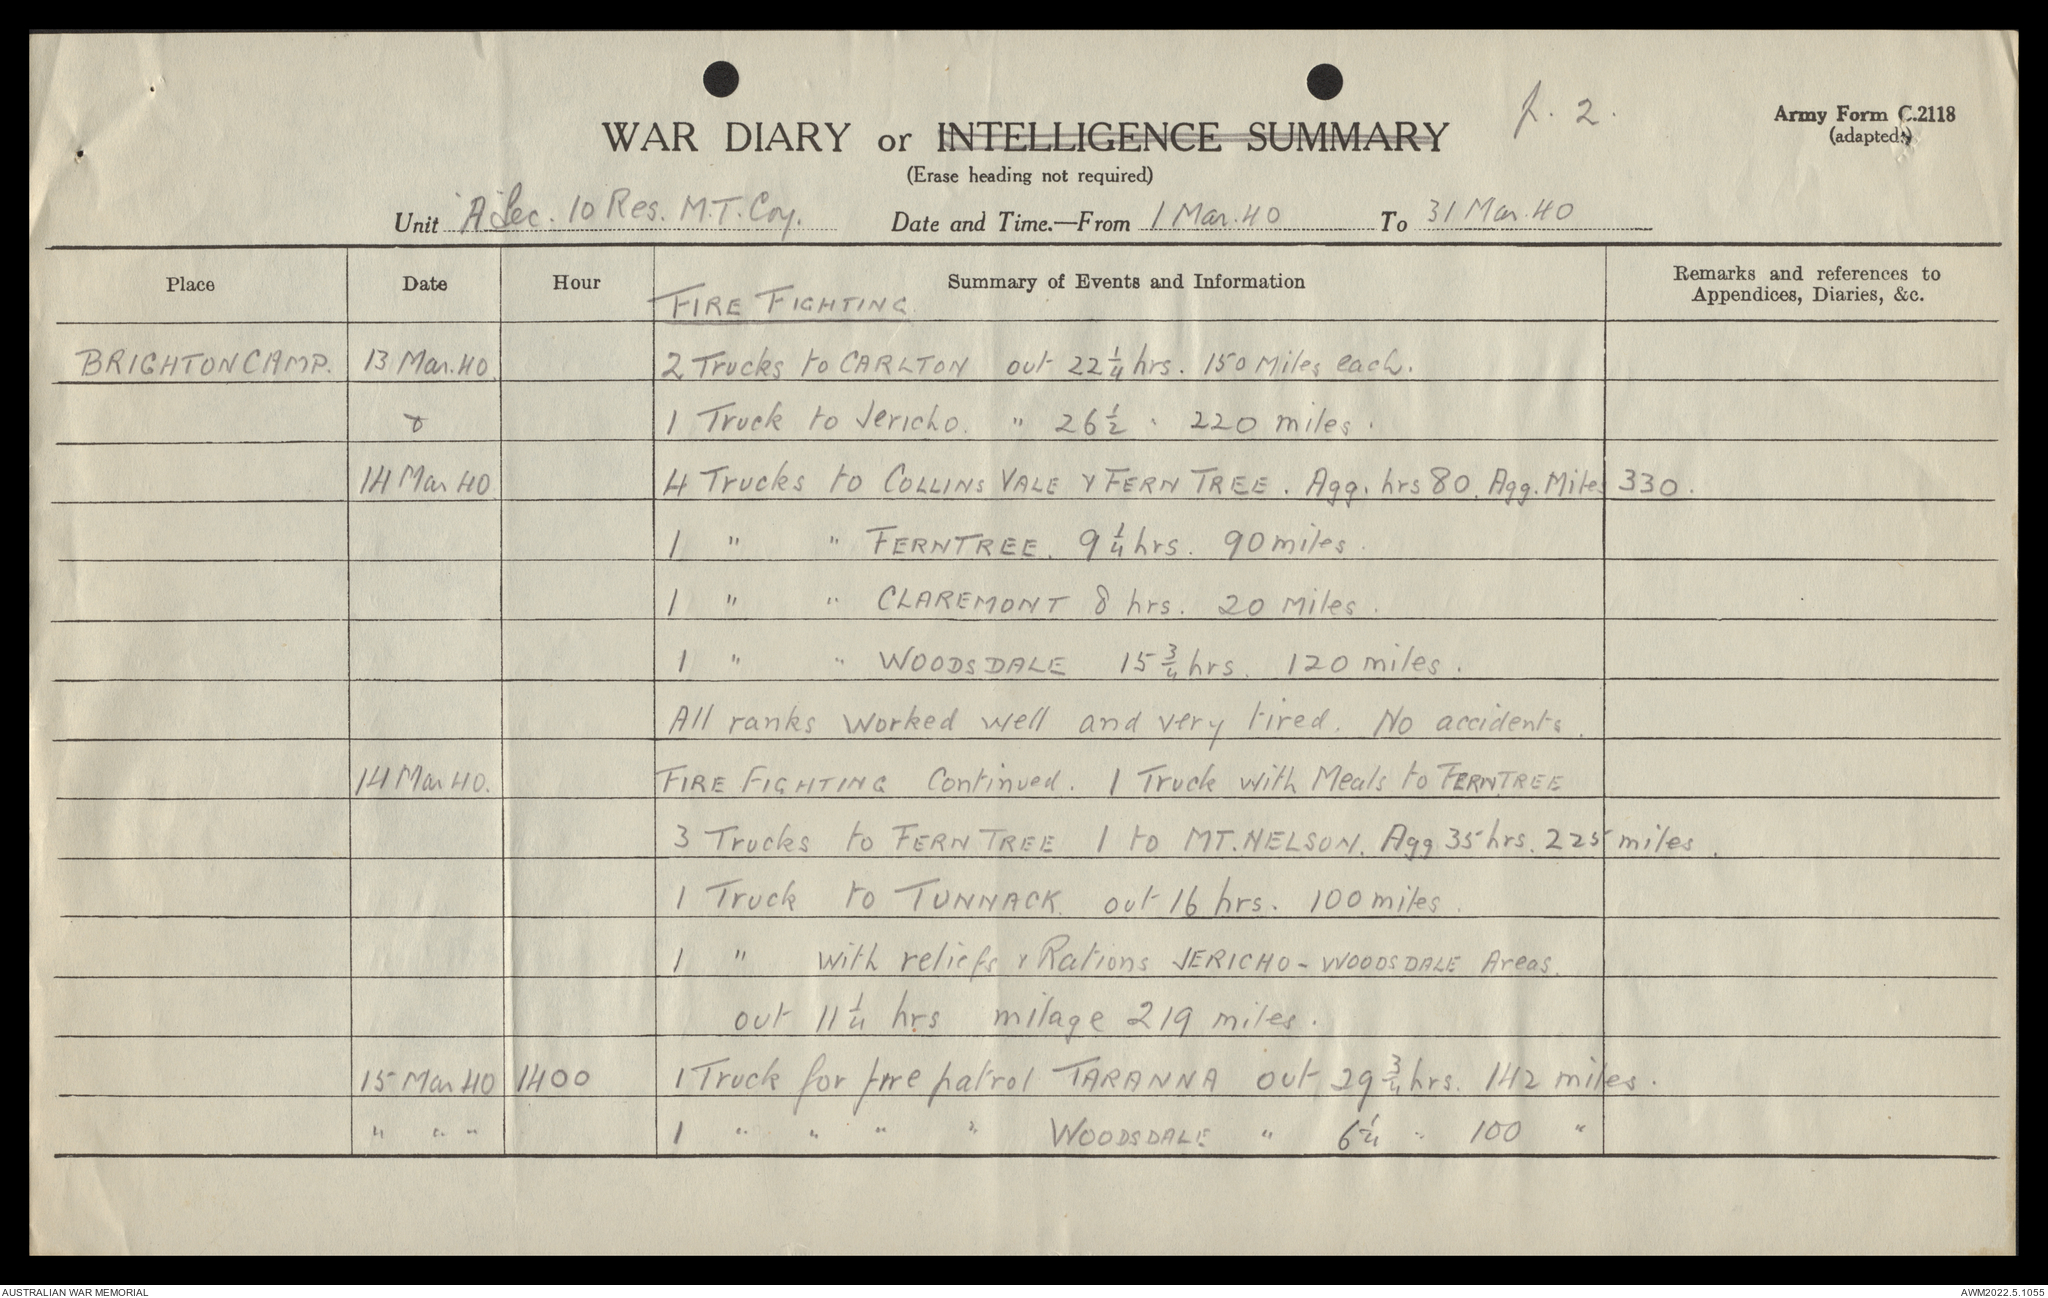 p. 2.
Army Form C.2118
(adapted.)
WAR DIARY or INTELLIGENCE SUMMARY
(Erase heading not required)
Unit "A" Sec. 10 Res. M.T. Coy. Date and Time.—From 1 Mar. 40 To 31 Mar. 40
Place Date Hour Summary of Events and Information Remarks and references to Appendices, Diaries, &c.
FIRE FIGHTING
BRIGHTON CAMP. 13 Mar. 40 2 Trucks to CARLTON out 22 1/4 hrs. 150 Miles each.
1 Truck to Jericho. " 26 1/2 " 220 miles.
14 Mar 40 4 Trucks to COLLINS VALE & FERN TREE. Agg. hrs 80. Agg. Miles 330.
1 " " FERNTREE. 9 1/4 hrs. 90 miles.
1 " " CLAREMONT 8 hrs. 20 miles.
1 " " WOODSDALE 15 3/4 hrs. 120 miles.
All ranks worked well and very tired. No accidents.
14 Mar 40. FIRE FIGHTING Continued. 1 Truck with Meals to FERNTREE
3 Trucks to FERN TREE 1 to MT. NELSON. Agg 35 hrs. 225 miles.
1 Truck to TUNNACK out 16 hrs. 100 miles.
1 " with reliefs & Rations JERICHO - WOODSDALE Areas.
out 11 1/4 hrs milage 219 miles.
15 Mar 40 1400 1 Truck for fire patrol TARANNA out 29 3/4 hrs. 142 miles.
" " " 1 " " " " WOODSDALE " 6 1/4 " 100 "
AUSTRALIAN WAR MEMORIAL
AWM2022.5.1055